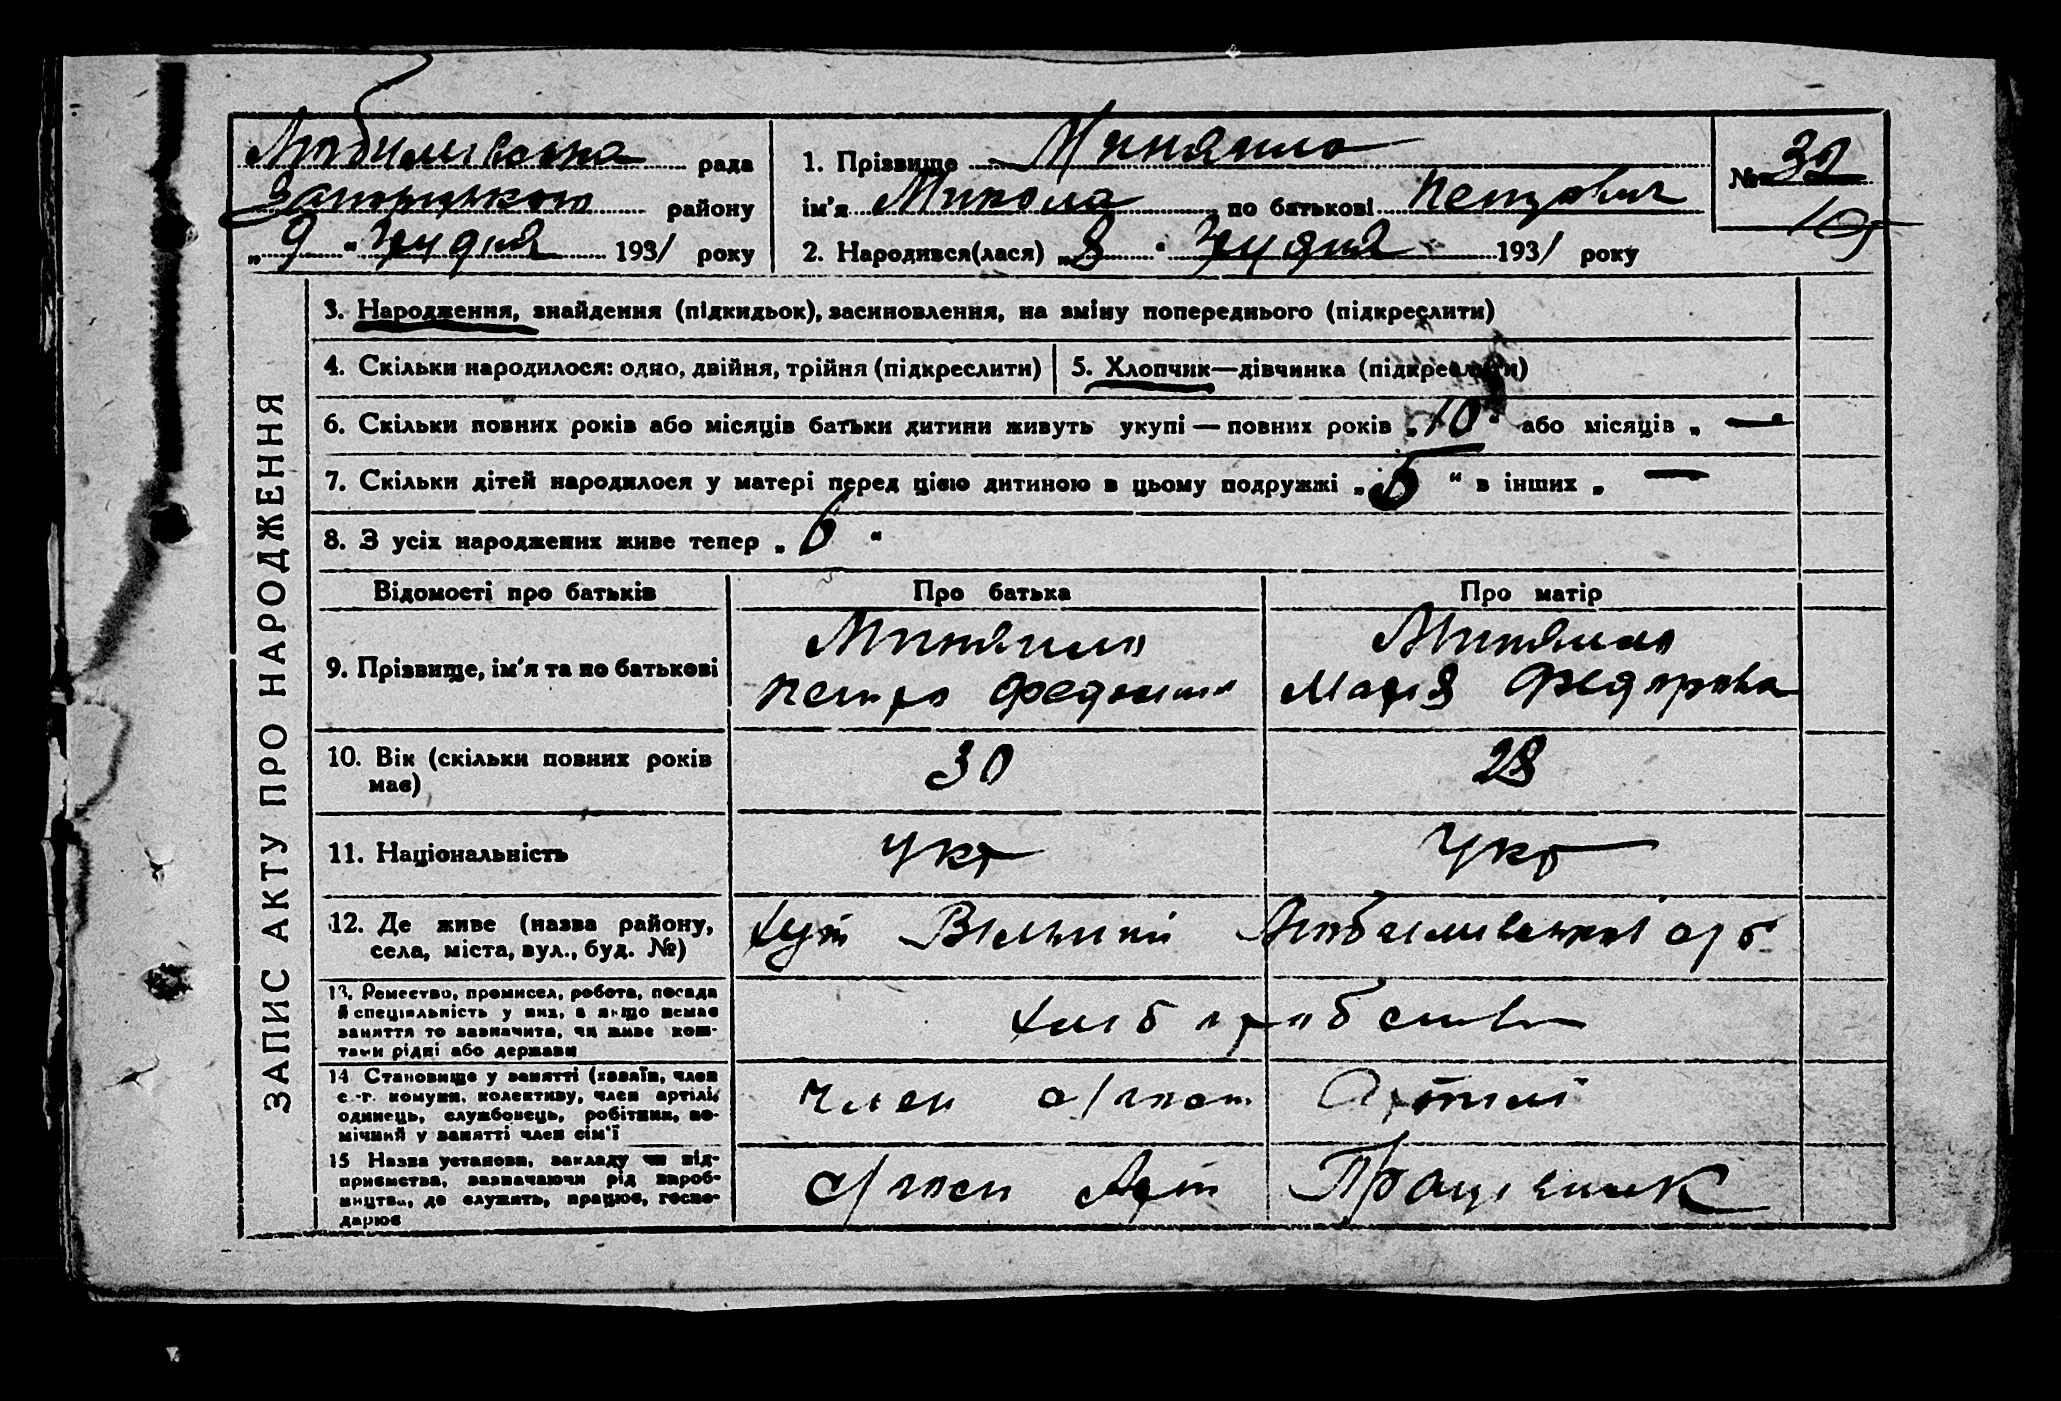 Любимівська рада
Запорізького району
„ 9 “ Грудня 1931 року
1. Прізвище Миняйло
ім'я Микола по батькові Петрович
2. Народився(лася) „ 8 “ Грудня 1931 року
№ 32
ЗАПИС АКТУ ПРО НАРОДЖЕННЯ
3. Народження, знайдення (підкидьок), засиновлення, на зміну попереднього (підкреслити)
4. Скільки народилося: одно, двійня, трійня (підкреслити)
5. Хлопчик—дівчинка (підкреслити)
6. Скільки повних років або місяців батьки дитини живуть укупі — повних років „ 10 “ або місяців „ —
7. Скільки дітей народилося у матері перед цією дитиною в цьому подружжі „ 5 “ в інших „ —
8. З усіх народжених живе тепер „ 6 “
Відомості про батьків
Про батька
Про матір
9. Прізвище, ім'я та по батькові
Миняйло
Петро
Миняйло
Марія Федорова
10. Вік (скільки повних років
має)
30
28
11. Національність
Укр
Укр
12. Де живе (назва району,
села, міста, вул., буд. №)
хут Вільний Любимівської
13. Ремество, промисел, робота, посада
й спеціяльність у них, а якщо немає
заняття то зазначити, чи живе кош-
тами рідні або держави
хліборобство
14. Становище у занятті (хазяїн, член
с.-г. комуни, колективу, член артілі,
одинець, службовець, робітник, по-
мічний у занятті член сім'ї
член Артілі
15 Назва установи, закладу чи під-
приємства, зазначаючи рід вироб-
ництва, де служить, працює, госпо-
дарює
Арт Працівник